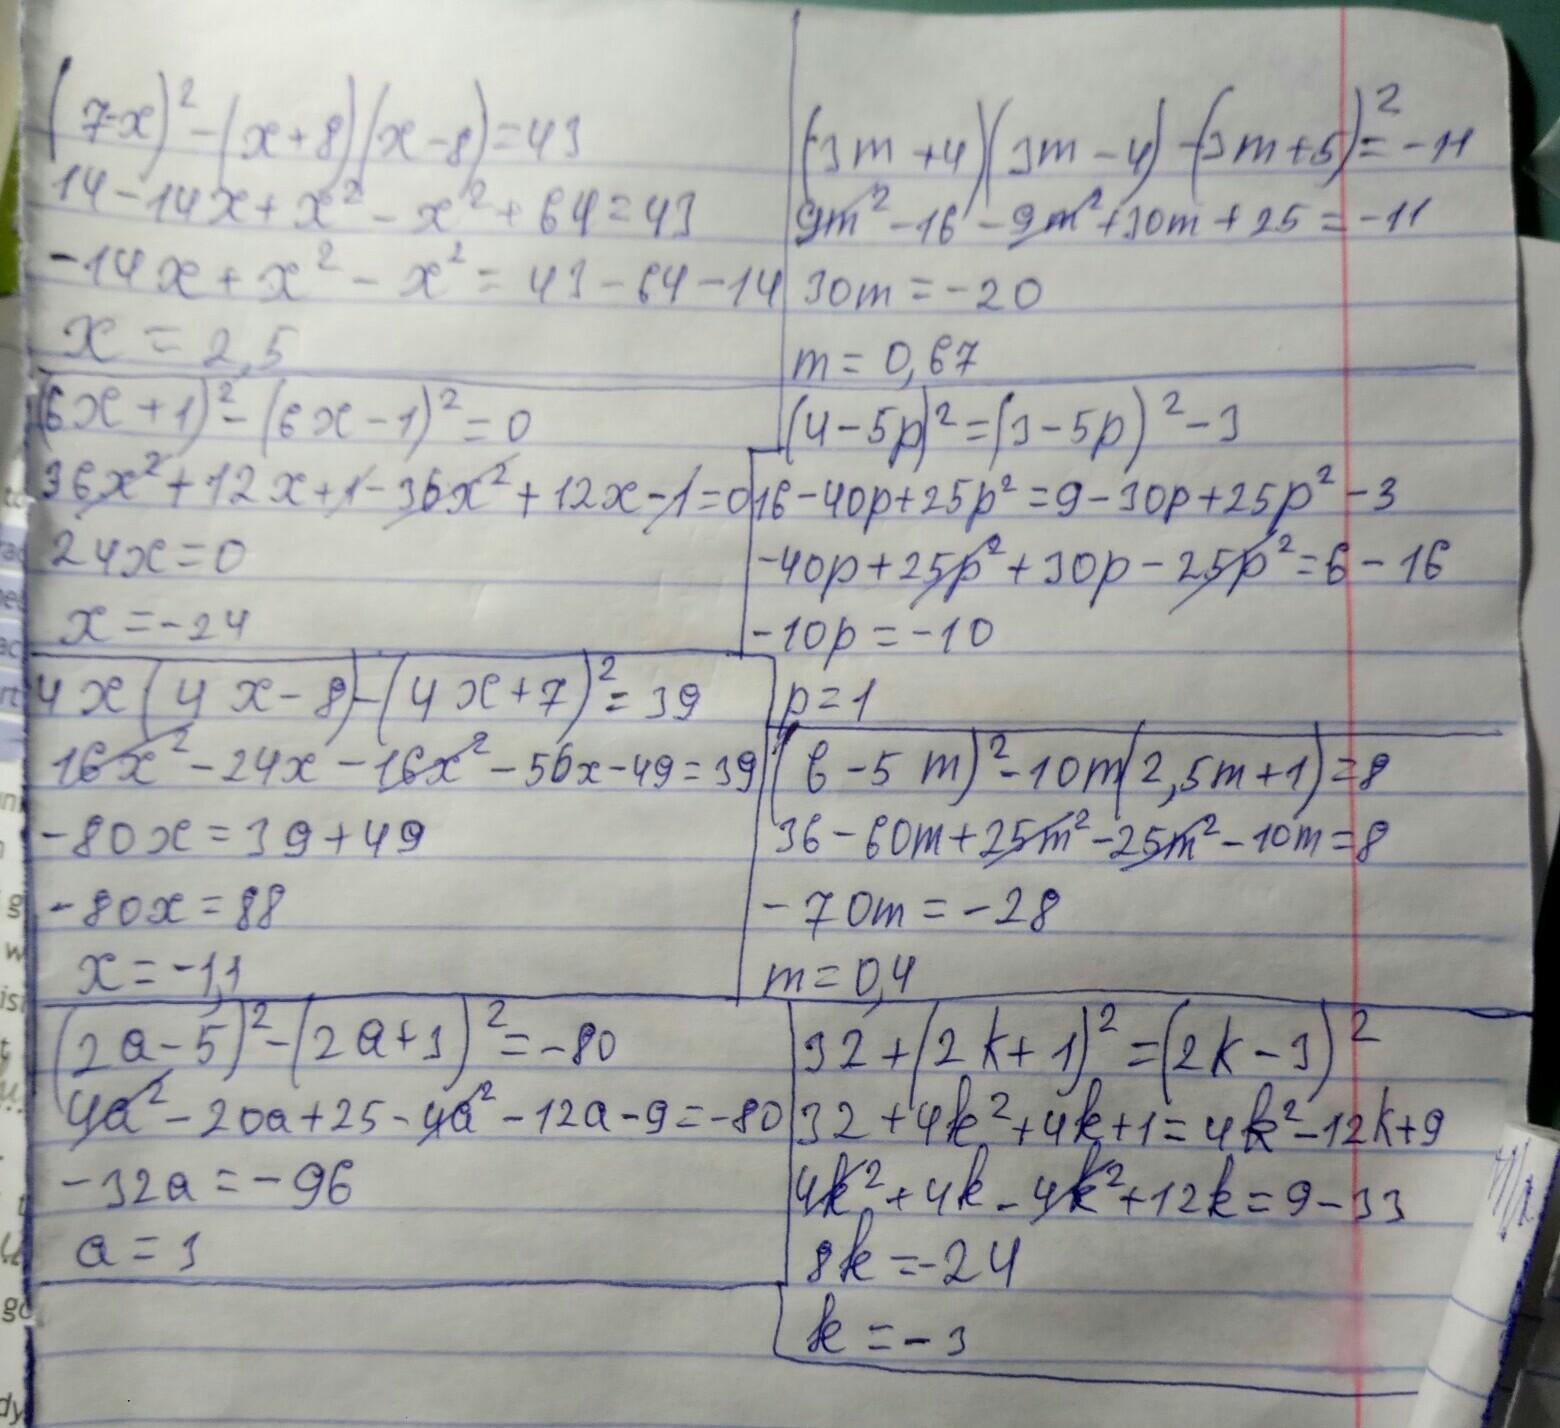 (7-x)² - (x+8)(x-8)=43
14-14x+x²-x²+64=43
-14x+x²-x²=43-64-14
x=2,5
(6x+1)²-(6x-1)²=0
36x²+12x+1-36x²+12x-1=0
24x=0
x=-24
4x(4x-8)-(4x+7)²=39
16x²-24x-16x²-56x-49=39
-80x=39+49
-80x=88
x=-1,1
(2a-5)²-(2a+3)²=-80
4a²-20a+25-4a²-12a-9=-80
-32a=-96
a=3
(3m+4)(3m-4)-(3m+5)²=-11
9m²-16-9m²+30m+25=-11
30m=-20
m=0,67
(4-5p)²=(3-5p)²-3
16-40p+25p²=9-30p+25p²-3
-40p+25p²+30p-25p²=6-16
-10p=-10
p=1
(6-5m)²-10m(2,5m+1)=8
36-60m+25m²-25m²-10m=8
-70m=-28
m=0,4
32+(2k+1)²=(2k-3)²
32+4k²+4k+1=4k²-12k+9
4k²+4k-4k²+12k=9-33
8k=-24
k=-3